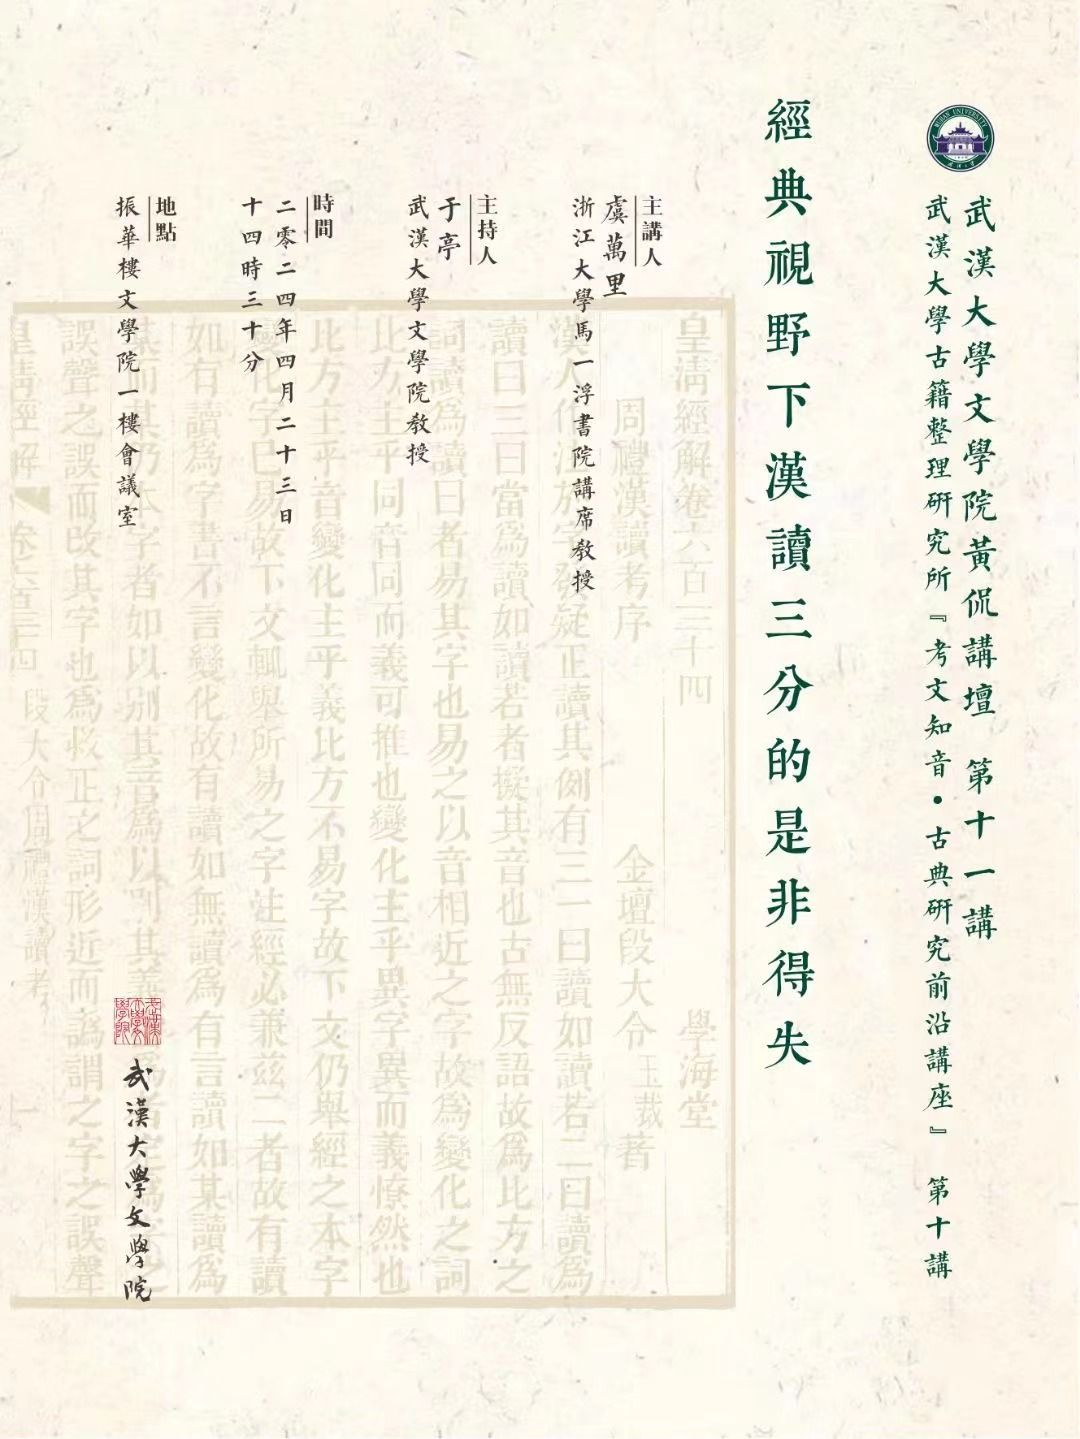 WUHAN UNIVERSITY
武漢大學文學院黃侃講壇　第十一講
武漢大學古籍整理研究所『考文知音•古典研究前沿講座』　第十講
經典視野下漢讀三分的是非得失
主講人
虞萬里
浙江大學馬一浮書院講席教授
主持人
于亭
武漢大學文學院教授
時間
二零二四年四月二十三日
十四時三十分
地點
振華樓文學院一樓會議室
武漢大學文學院
武漢大學文學院
皇清經解卷六百三十四　學海堂
周禮漢讀考序　金壇段大令玉裁著
漢人作注於字發疑正讀其例有三一曰讀如讀若二曰讀爲
讀曰三曰當爲讀如讀若者擬其音也古無反語故爲比方之
詞讀爲讀曰者易其字也易之以音相近之字故爲變化之詞
比方主乎同音同而義可推也變化主乎異字異而義憭然也
比方主乎音變化主乎義比方不易字故下文仍舉經之本字
變化字已易故下文輒舉所易之字注經必兼茲二者故有讀
如有讀爲字書不言變化故有讀如無讀爲有言讀如某讀爲